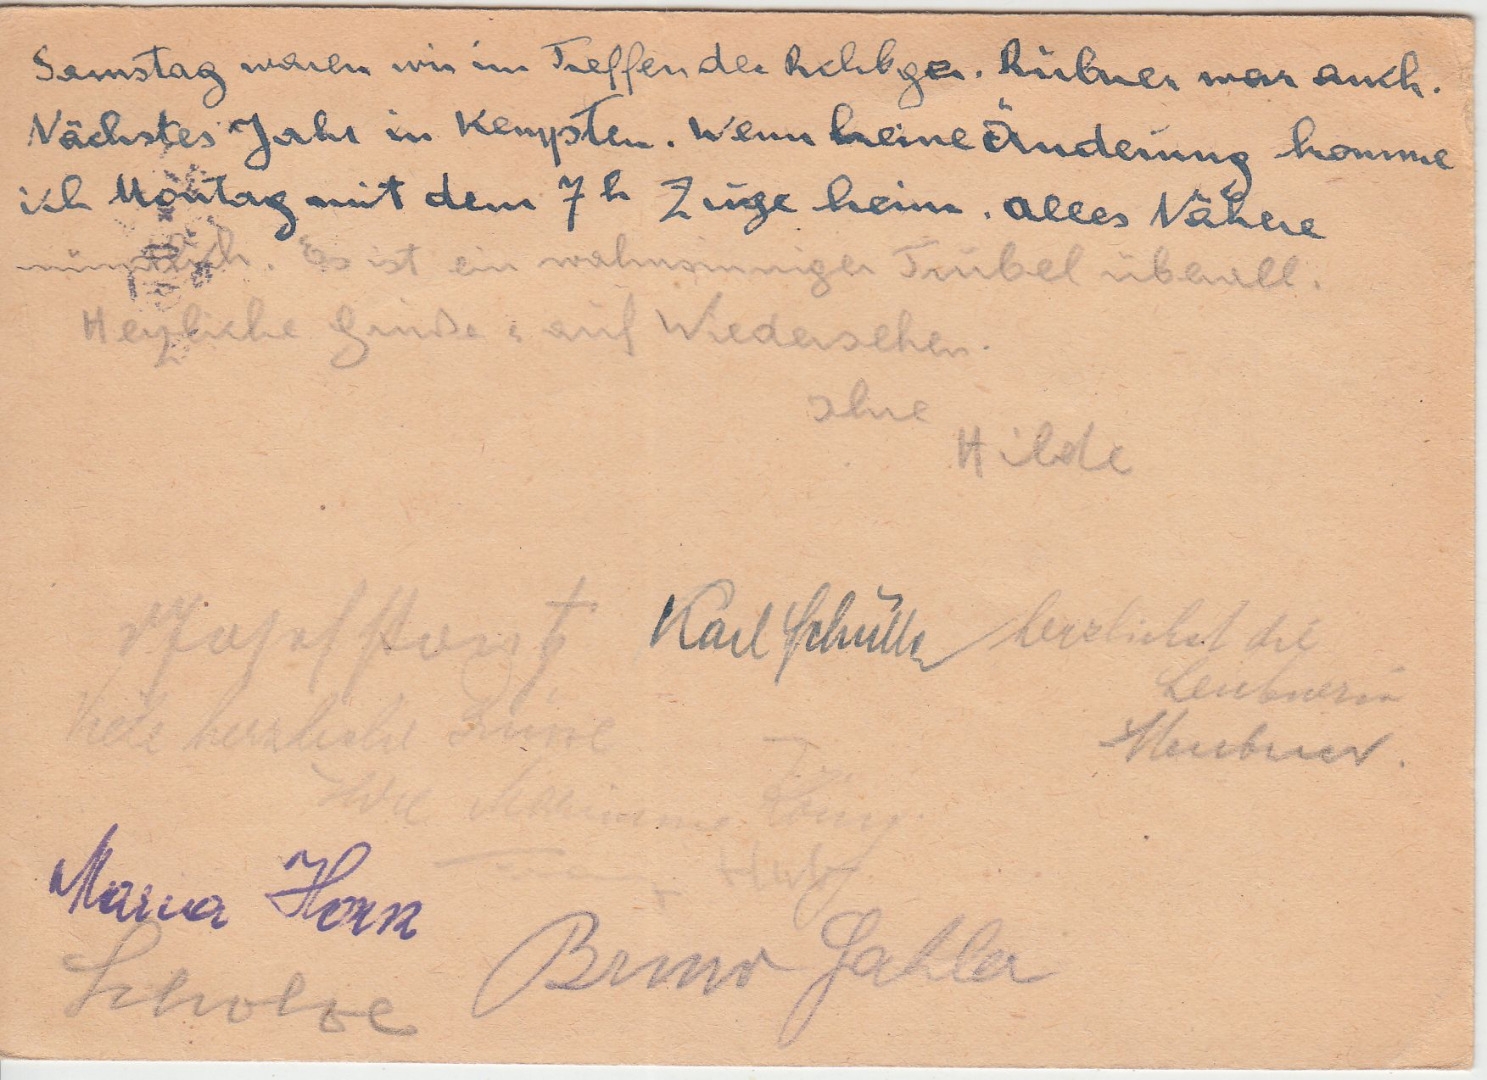 Samstag waren wir im Treffen der Rchbger. Rübner war auch.
Nächstes Jahr in Kempten. Wenn keine Änderung komme
ich Montag mit dem 7 h Zuge heim. Alles Nähere
mündlich. Es ist ein wahnsinniger Trubel überall.
Herzliche Grüße u. auf Wiedersehen.
Ihre
Hilde
Josef
Karl Schüller herzlichst die
Viele herzliche Grüsse
Ihre Marianne König
Maria Horn
Scholze Bruno Gahler